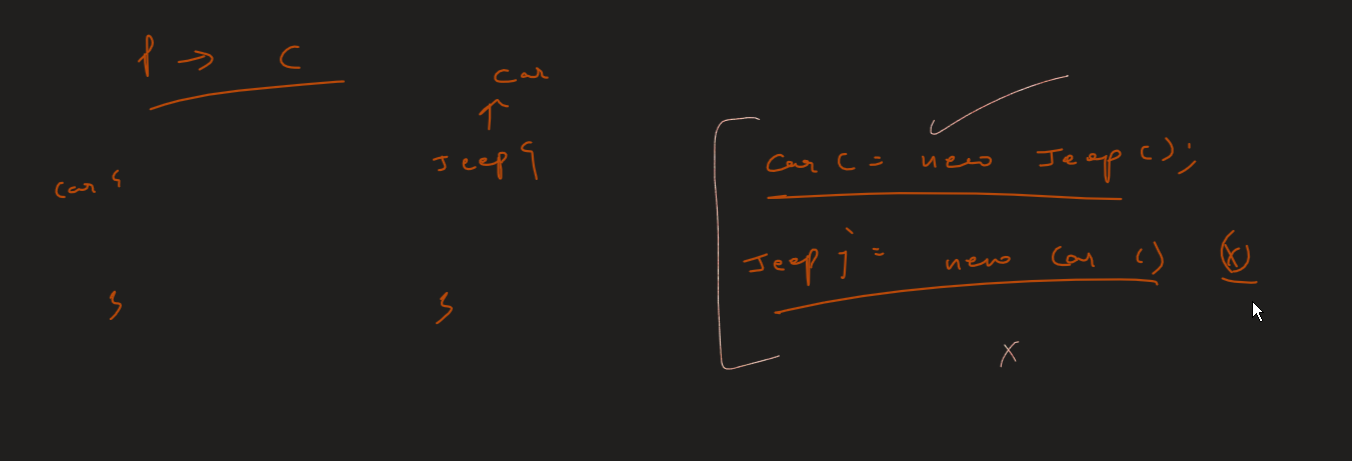 P → C
Car
↑
Jeep {
Car {
}
}
Car C = new Jeep();
Jeep j = new Car () (x)
x